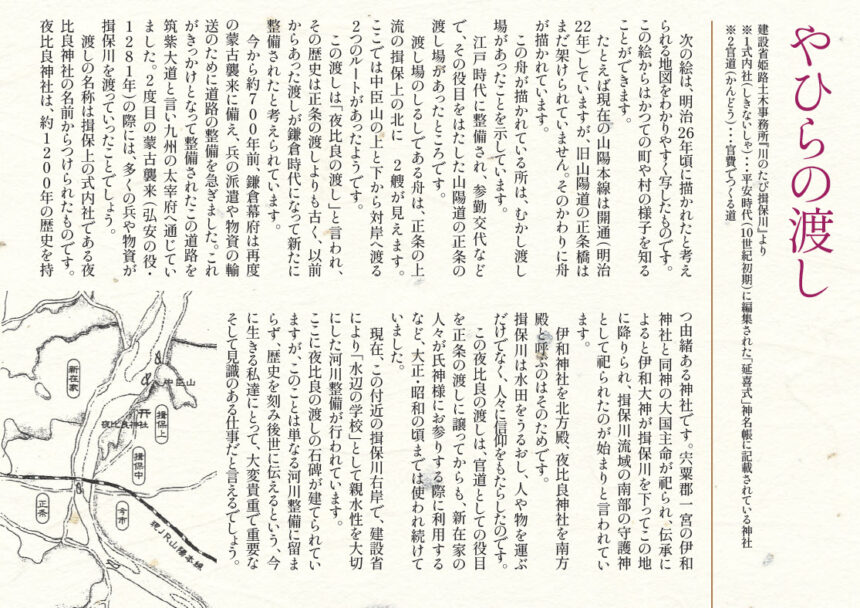 やひらの渡し
建設省姫路土木事務所『川のたび揖保川』より
※1式内社(しきないしゃ)・・平安時代(10世紀初期)に編集された「延喜式」神名帳に記載されている神社
※2官道(かんどう)・・・官費でつくる道
次の絵は、明治26年頃に描かれたと考え
られる地図をわかりやすく写したものです。
この絵からはかつての町や村の様子を知る
ことができます。
たとえば現在の山陽本線は開通(明治
22年)していますが、旧山陽道の正条橋は
まだ架けられていません。そのかわりに舟
が描かれています。
この舟が描かれている所は、むかし渡し
場があったことを示しています。
江戸時代に整備され、参勤交代など
で、その役目をはたした山陽道の正条の
渡し場があったところです。
渡し場のしるしである舟は、正条の上
流の揖保上の北に 2艘が見えます。
ここでは中臣山の上と下から対岸へ渡る
2つのルートがあったようです。
この渡しは「夜比良の渡し」と言われ、
その歴史は正条の渡しよりも古く、以前
からあった渡しが鎌倉時代になって新たに
整備されたと考えられています。
今から約700年前、鎌倉幕府は再度
の蒙古襲来に備え、兵の派遣や物資の輸
送のために道路の整備を急ぎました。これ
がきっかけとなって整備されたこの道路を
筑紫大道と言い九州の太宰府へ通じてい
ました。2度目の蒙古襲来(弘安の役・
1281年)の際には、多くの兵や物資が
揖保川を渡っていったことでしょう。
渡しの名称は揖保上の式内社である夜
比良神社の名前からつけられたものです。
夜比良神社は、約1200年の歴史を持
つ由緒ある神社です。宍粟郡一宮の伊和
神社と同神の大国主命が祀られ、伝承に
よると伊和大神が揖保川を下ってこの地
に降りられ、揖保川流域の南部の守護神
として祀られたのが始まりと言われてい
ます。
伊和神社を北方殿、夜比良神社を南方
殿と呼ぶのはそのためです。
揖保川は水田をうるおし、人や物を運ぶ
だけでなく、人々に信仰をもたらしたのです。
この夜比良の渡しは、官道としての役目
を正条の渡しに譲ってからも、新在家の
人々が氏神様にお参りする際に利用する
など、大正・昭和の頃までは使われ続けて
いました。
現在、この付近の揖保川右岸で、建設省
により「水辺の学校」として親水性を大切
にした河川整備が行われています。
ここに夜比良の渡しの石碑が建てられてい
ますが、このことは単なる河川整備に留ま
らず、歴史を刻み後世に伝えるという、今
に生きる私達にとって、大変貴重で重要な
そして見識のある仕事だと言えるでしょう。
新在家
中臣山
揖保上
夜比良神社
揖保中
正条
今市
現JR山陽本線